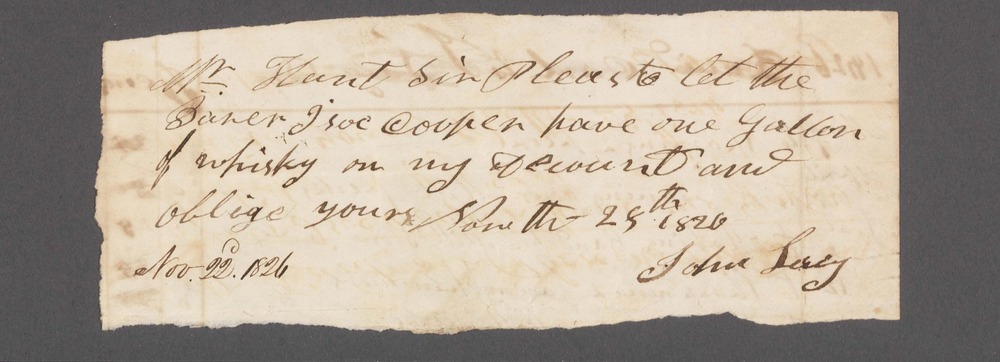 Mr. Hunt Sir Pleas to let the
Barer Isoc Cooper have one Gallon
of whisky on my account and
oblige yours Novmth 25th 1826
Nov. 22d. 1826 John